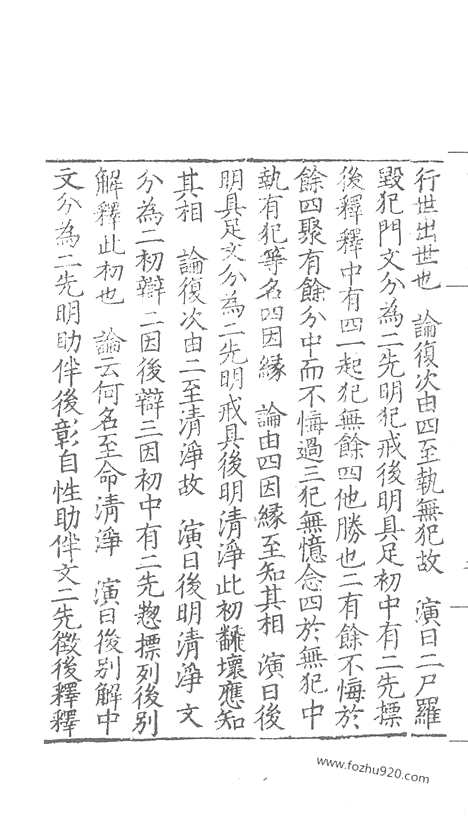 行世出世也　論復次由四至執無犯故　演曰二尸羅
毀犯門文分為二先明犯戒後明具足初中有二先標
後釋釋中有四一起犯無餘四他勝也二有餘不悔於
餘四聚有餘分中而不悔過三犯無憶念四於無犯中
執有犯等名四因緣　論由四因緣至知其相　演曰後
明具足文分為二先明戒具後明清淨此初翻壞應知
其相　論復次由二至清淨故　演曰後明清淨文
分為二初辯二因後辯三因初中有二先惣摽列後別
解釋此初也　論云何名至命清淨　演曰後別解中
文分為二先明助伴後彰自性助伴文二先徵後釋釋
www.fozhu920.com